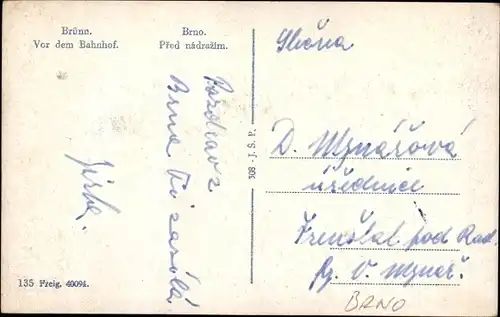 Brünn.
Vor dem Bahnhof.
Brno.
Před nádražím.
Pozdrav z
Brna Ti zasílá
Jirka.
135 Freig. 40094.
308 J. S. P.
Slečna
D. Mynářová
úřednice
Frenštat pod Rad.
V. Mynář.
BRNO